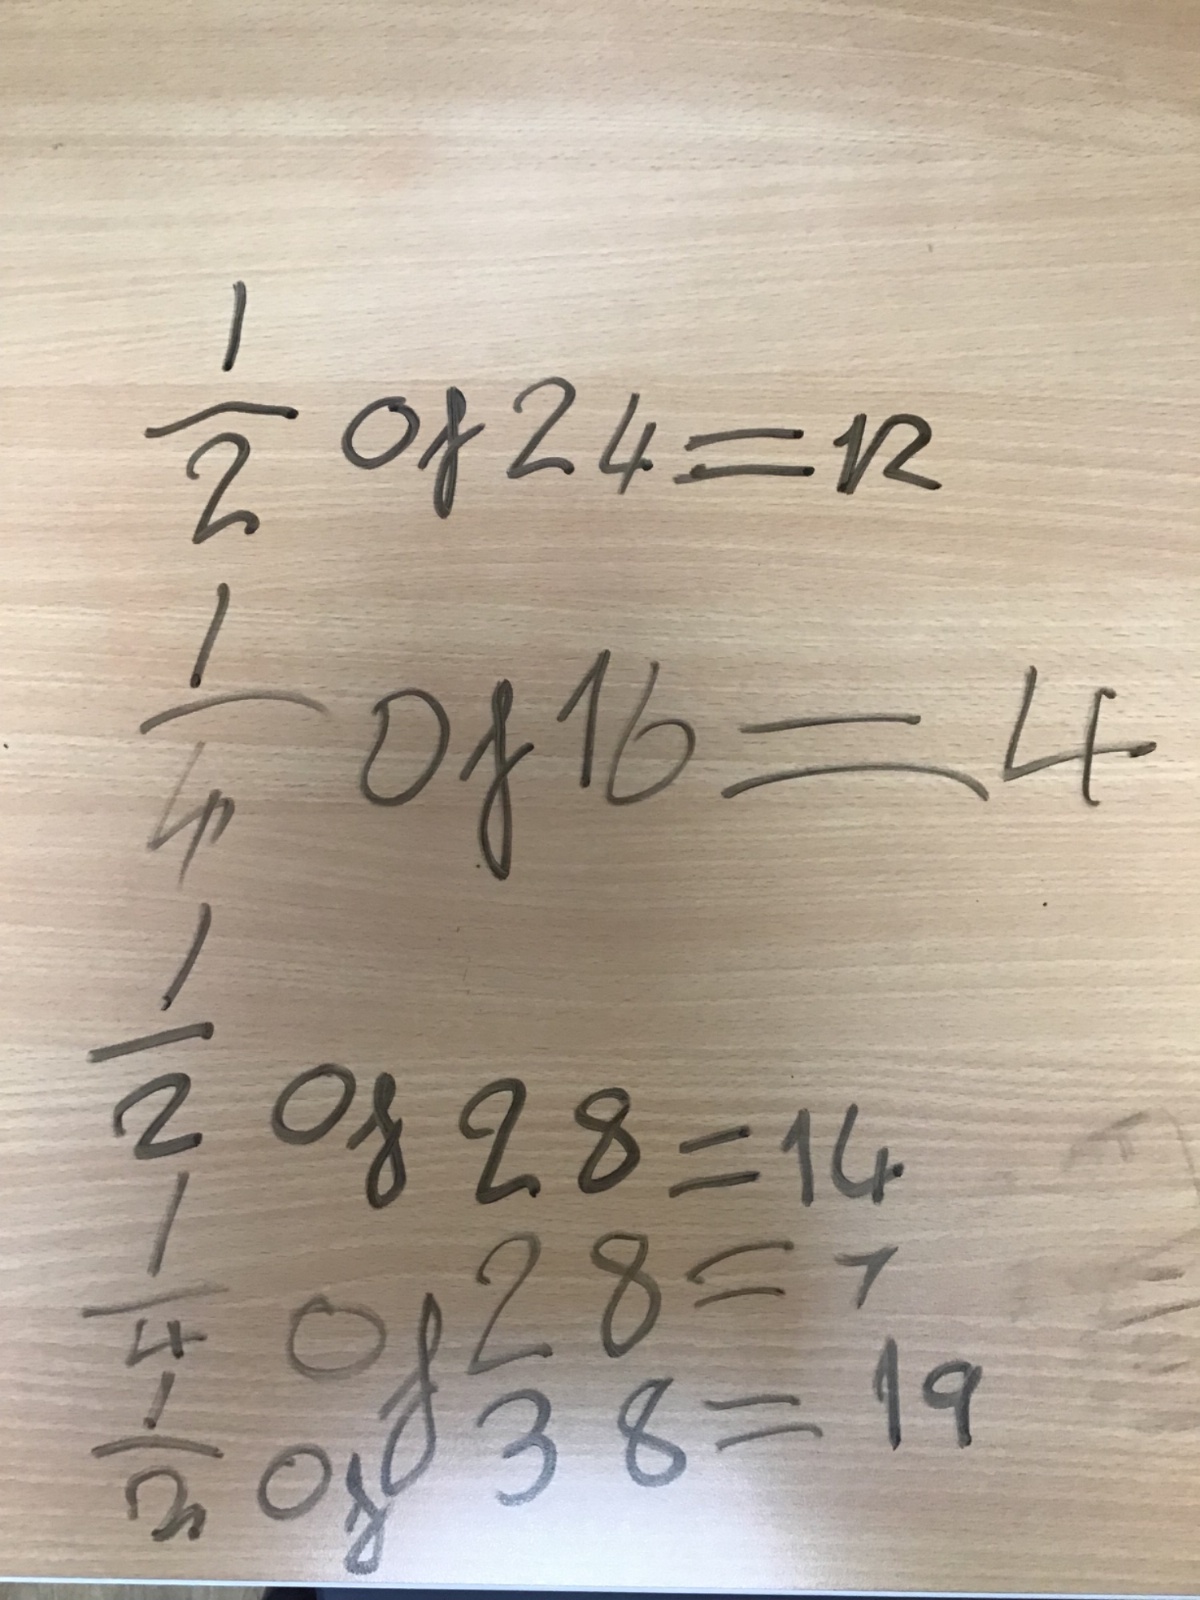 1/2 of 24 = 12
1/4 of 16 = 4
1/2 of 28 = 14
1/4 of 28 = 7
1/2 of 38 = 19